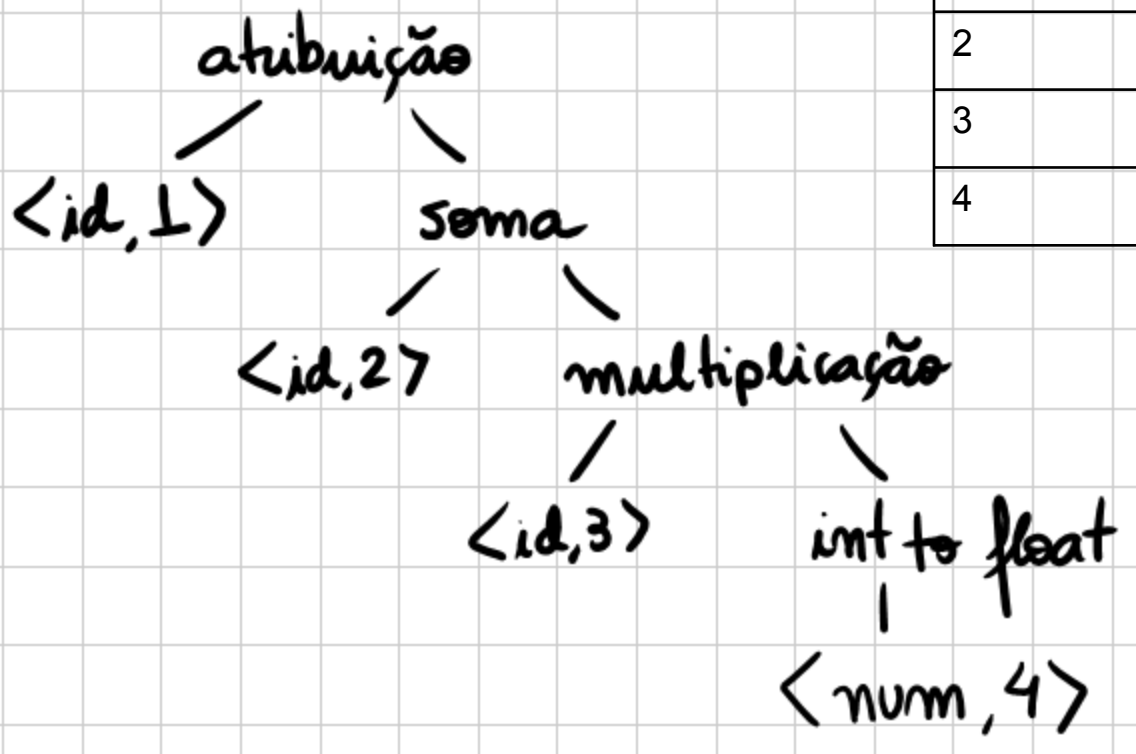 atribuição
2
3
<id,1>
soma
4
<id,2>
multiplicação
<id,3>
int to float
<num,4>